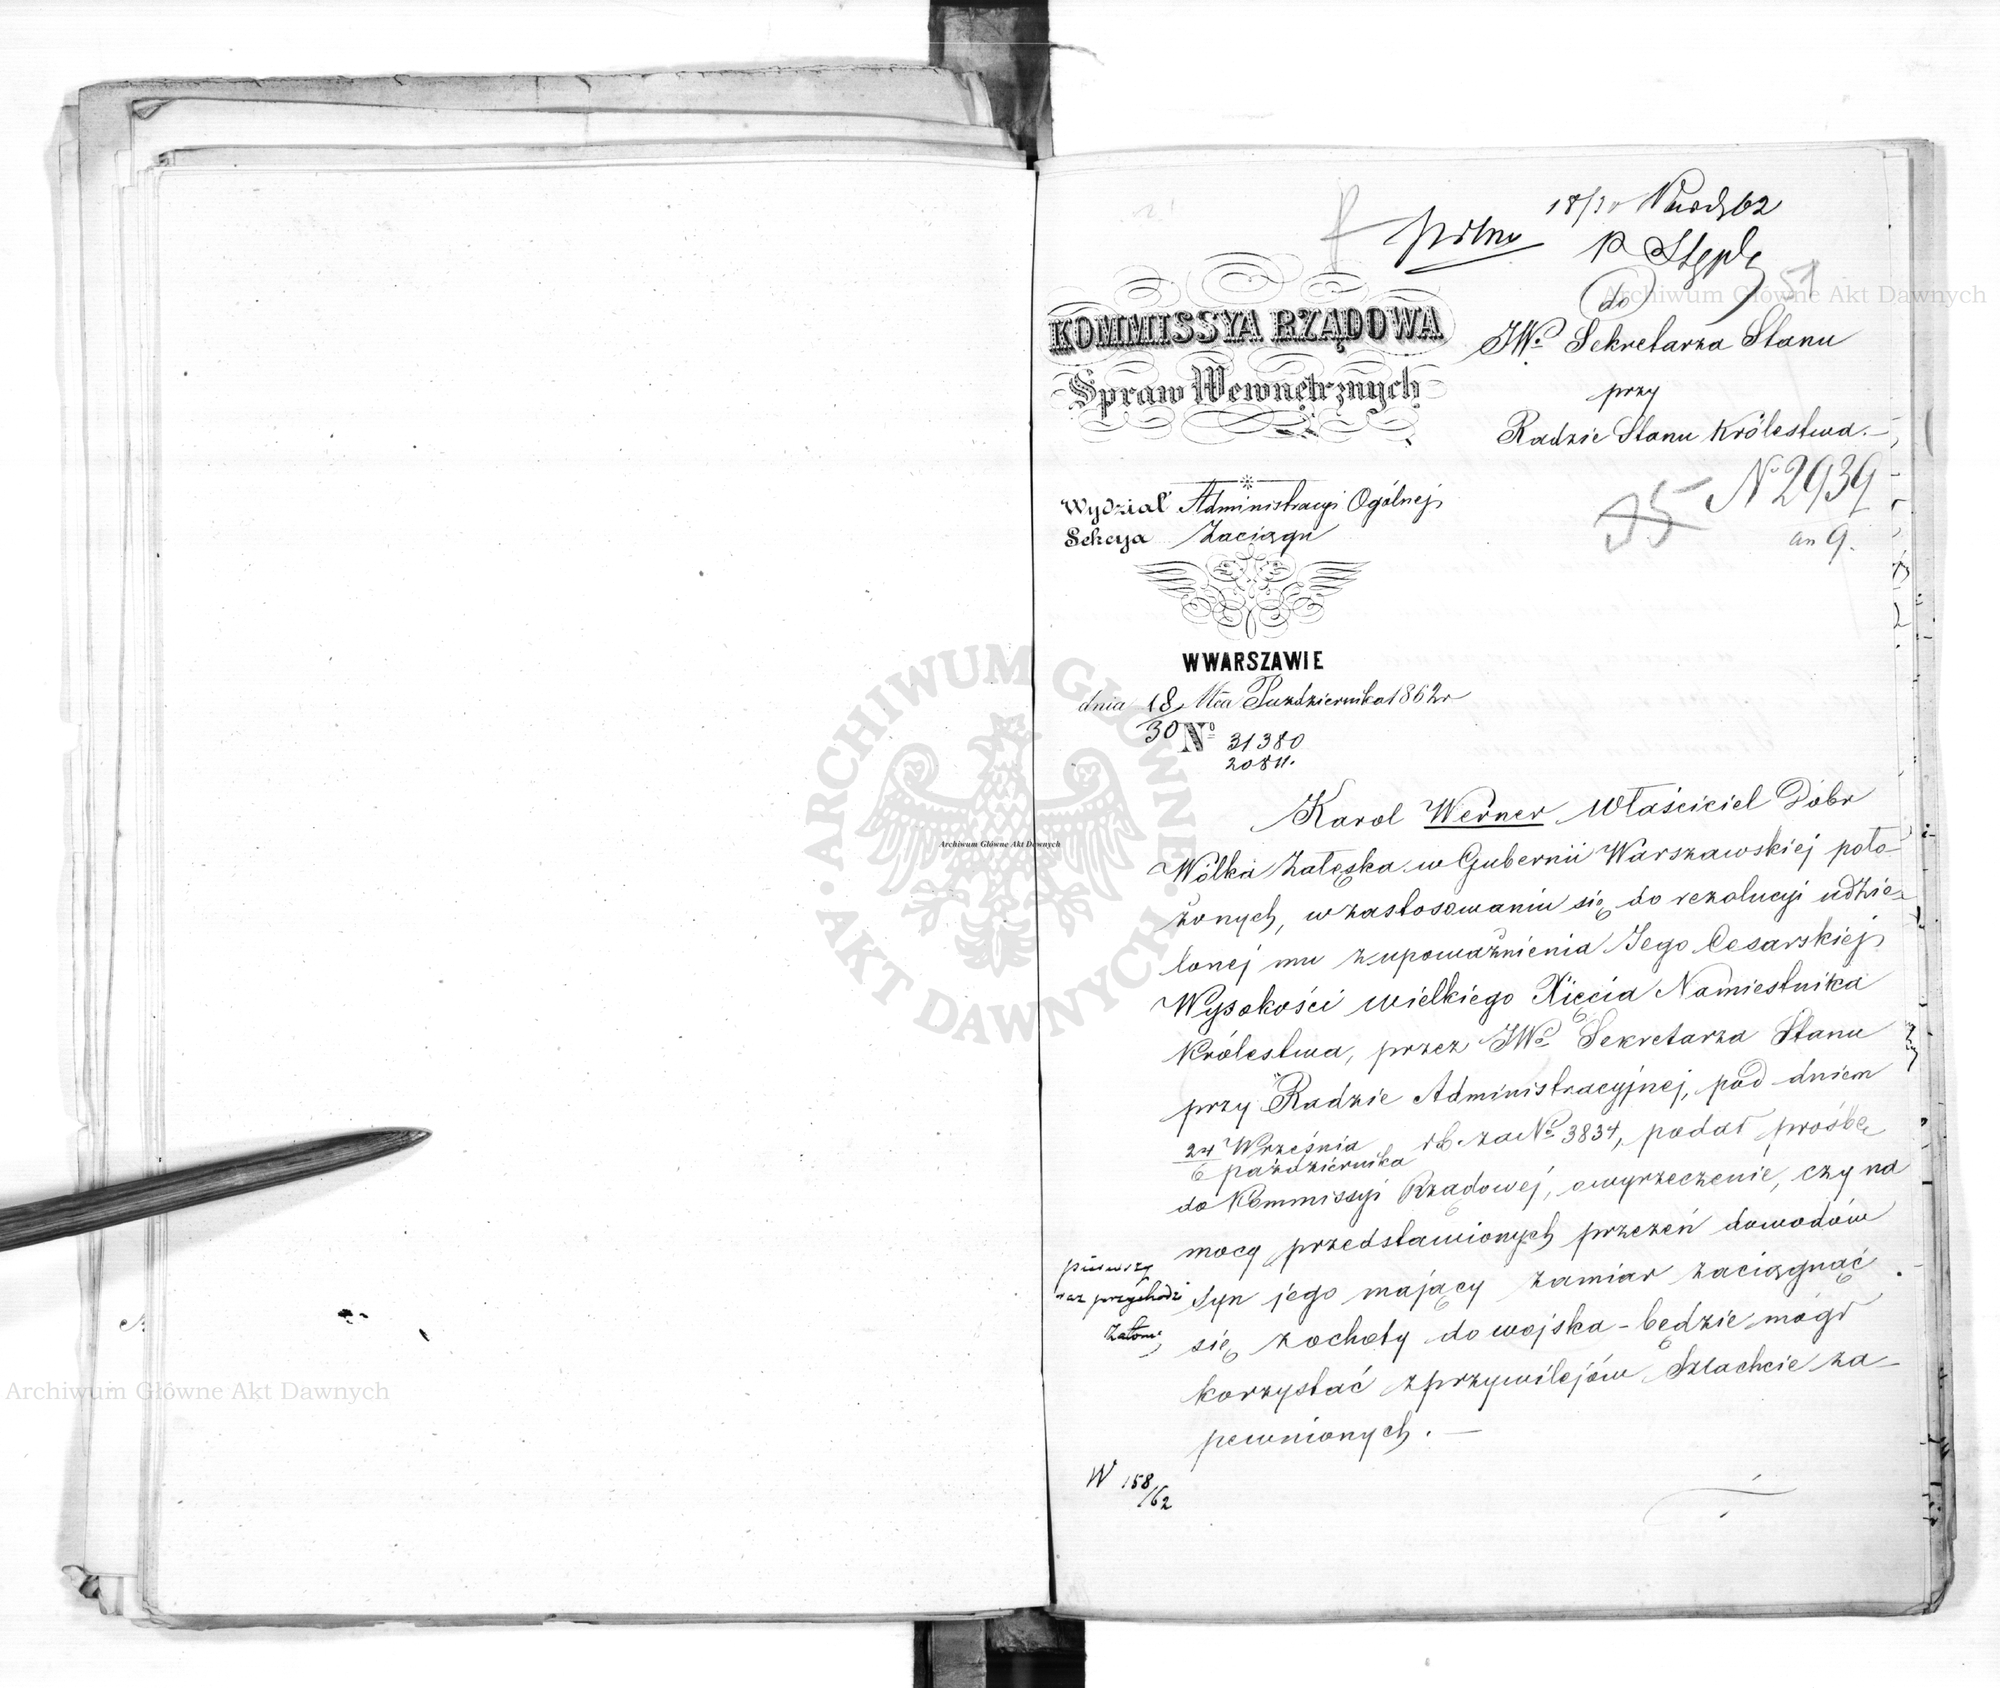 pilno
do
JWo Sekretarza Stanu
przy
Radzie Stanu Królestwa.—
51
No 2939
an 9.
KOMMISSYA RZĄDOWA
Spraw Wewnętrznych
Wydział Administracyi Ogólnej
Sekcya Zaciągu
W WARSZAWIE
dnia 18/30 Mca Października 1862 r
No 31380
20811.
Karol Werner Właściciel Dóbr
Wólka Załęska w Gubernii Warszawskiej poło-
żonych, w zastosowaniu się do rezolucyi udzie-
lonej mu z upoważnienia Jego Cesarskiej
Wysokości Wielkiego Xięcia Namiestnika
Królestwa, przez JWo Sekretarza Stanu
przy Radzie Administracyjnej, pod dniem
24 Września / 6 Października r b. za No 3834, podał prośbę
do Kommissyi Rządowej, o wyrzeczenie, czy na
mocy przedstawionych przezeń dowodów
syn jego mający zamiar zaciągnąć
się z ochoty do wojska – będzie mógł
korzystać z przywilejów Szlachcie za-
pewnionych. —
pierwszy
raz przychodzi
W 158/62
Archiwum Główne Akt Dawnych
ARCHIWUM GŁÓWNE AKT DAWNYCH
Archiwum Główne Akt Dawnych
Archiwum Główne Akt Dawnych